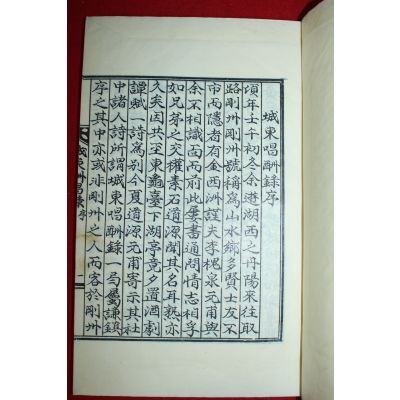 城東唱酬錄序
頃年壬午初冬余遊湖西之丹陽來往取
路剛州剛州號稱爲山水鄉多賢士友不
市而隱者有金西洲謹夫李槐泉元甫與
余不相識面而前此屢書通問情志相孚
如兄弟之交權素石道源聞其名耳熟亦
久矣因共一至東龜臺下湖亭竟夕置酒劇
譚賦一詩爲別今夏道源元甫寄示其社
中諸人詩所謂城東唱酬錄一局屬謙鎭
序之其中亦或非剛州之人而客於剛州
城東唱酬錄序
一